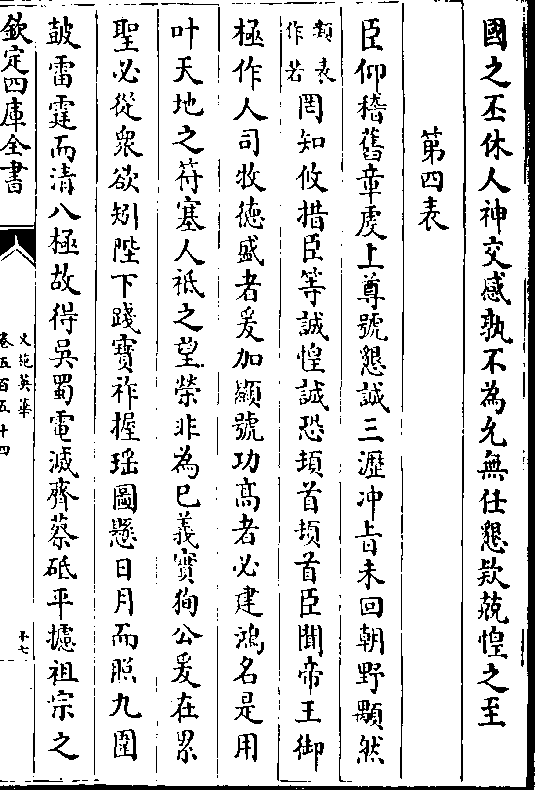 國之丕休人神交感孰不為允無任懇欵兢惶之至
第四表
臣仰稽舊章䖍上尊號懇誠三瀝冲㫖未回朝野顒然
類表作若罔知攸措臣等誠惶誠恐頓首頓首臣聞帝王御
極作人司牧徳盛者爰加顯號功髙者必建鴻名是用
叶天地之符塞人祗之望榮非為已義實狥公爰在累
聖必從衆欲矧陛下踐寳祚握瑶圖懸日月而照九圍
鼓雷霆而清八極故得吳蜀電滅齊蔡砥平攄祖宗之
欽定四庫全書
文苑英華
卷五百五十四
十七